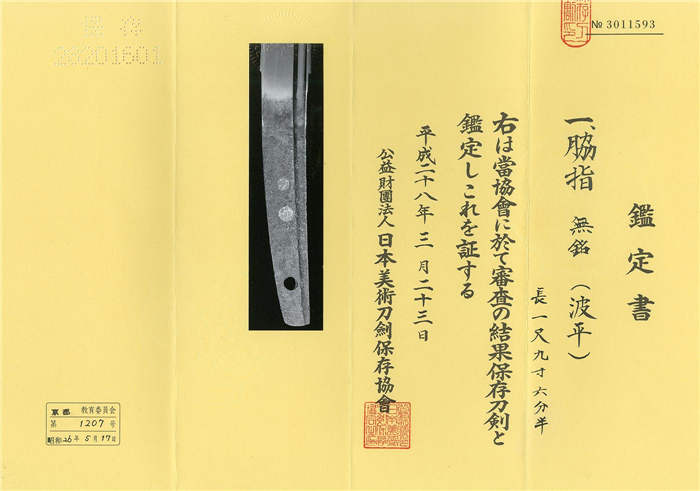 No 3011593
鑑定書
一、脇指 無銘(波平)
長一尺九寸六分半
右は當協會に於て審査の結果保存刀剣と
鑑定しこれを証する
平成二十八年三月二十三日
公益財團法人 日本美術刀劍保存協會
保存
28201601
京都 教育委員会
第 1207 号
昭和26年5月17日